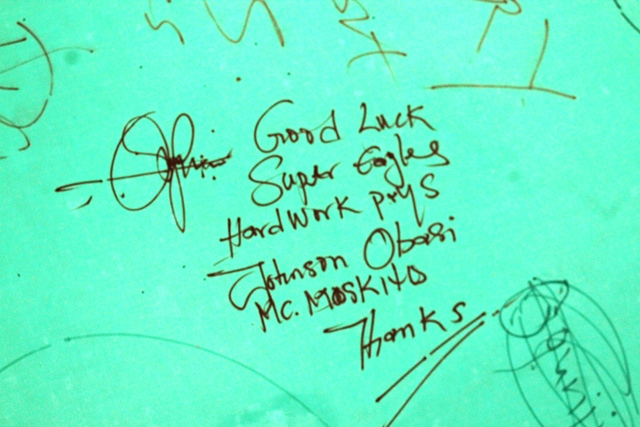 Good Luck
Super Eagles
HardWork pays
Johnson Obasi
Mc. Moskito
Thanks